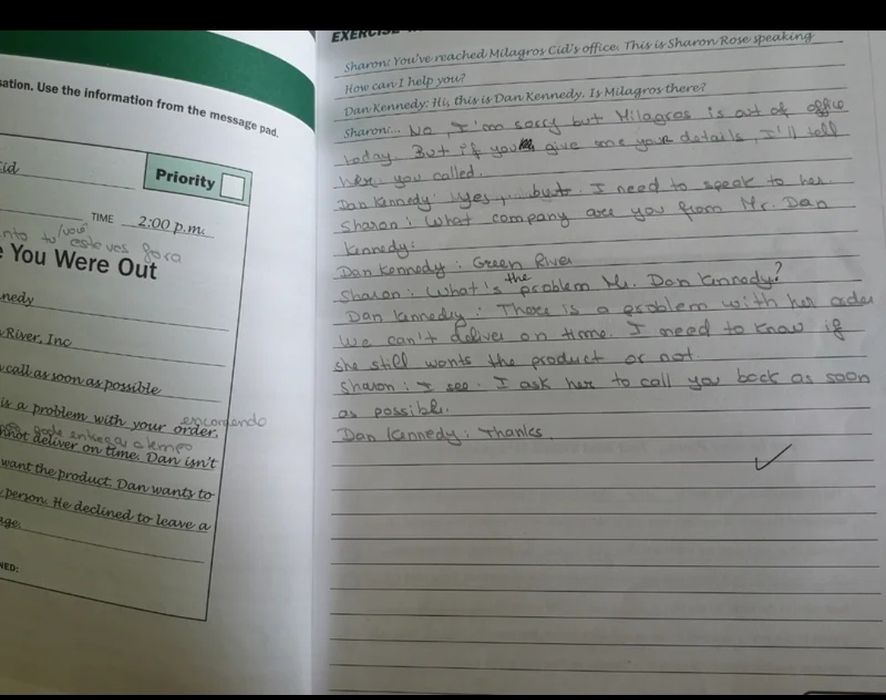 EXERCISE
sation. Use the information from the message pad.
Cid
Priority
TIME 2:00 p.m.
esteves fora
You Were Out
nedy
River, Inc
call as soon as possible
is a problem with your order.
encomenda
pode entregar a tempo
nnot deliver on time. Dan isn't
want the product. Dan wants to
person. He declined to leave a
age.
NED:
Sharon: You've reached Milagros Cid's office. This is Sharon Rose speaking
How can I help you?
Dan Kennedy: Hi, this is Dan Kennedy. Is Milagros there?
Sharon:... No, I'm sorry but Milagros is out of office
today. But if you give me your details, I'll tell
her you called.
Dan Kennedy: Yes, but. I need to speak to her.
Sharon: What company are you from Mr. Dan
Kennedy:
Dan Kennedy: Green River
Sharon: What's the problem Mr. Dan Kennady?
Dan Kennedy: There is a problem with her order
We can't deliver on time. I need to know if
she still wants the product or not.
Sharon: I see. I ask her to call you back as soon
as possible.
Dan Kennedy: Thanks.